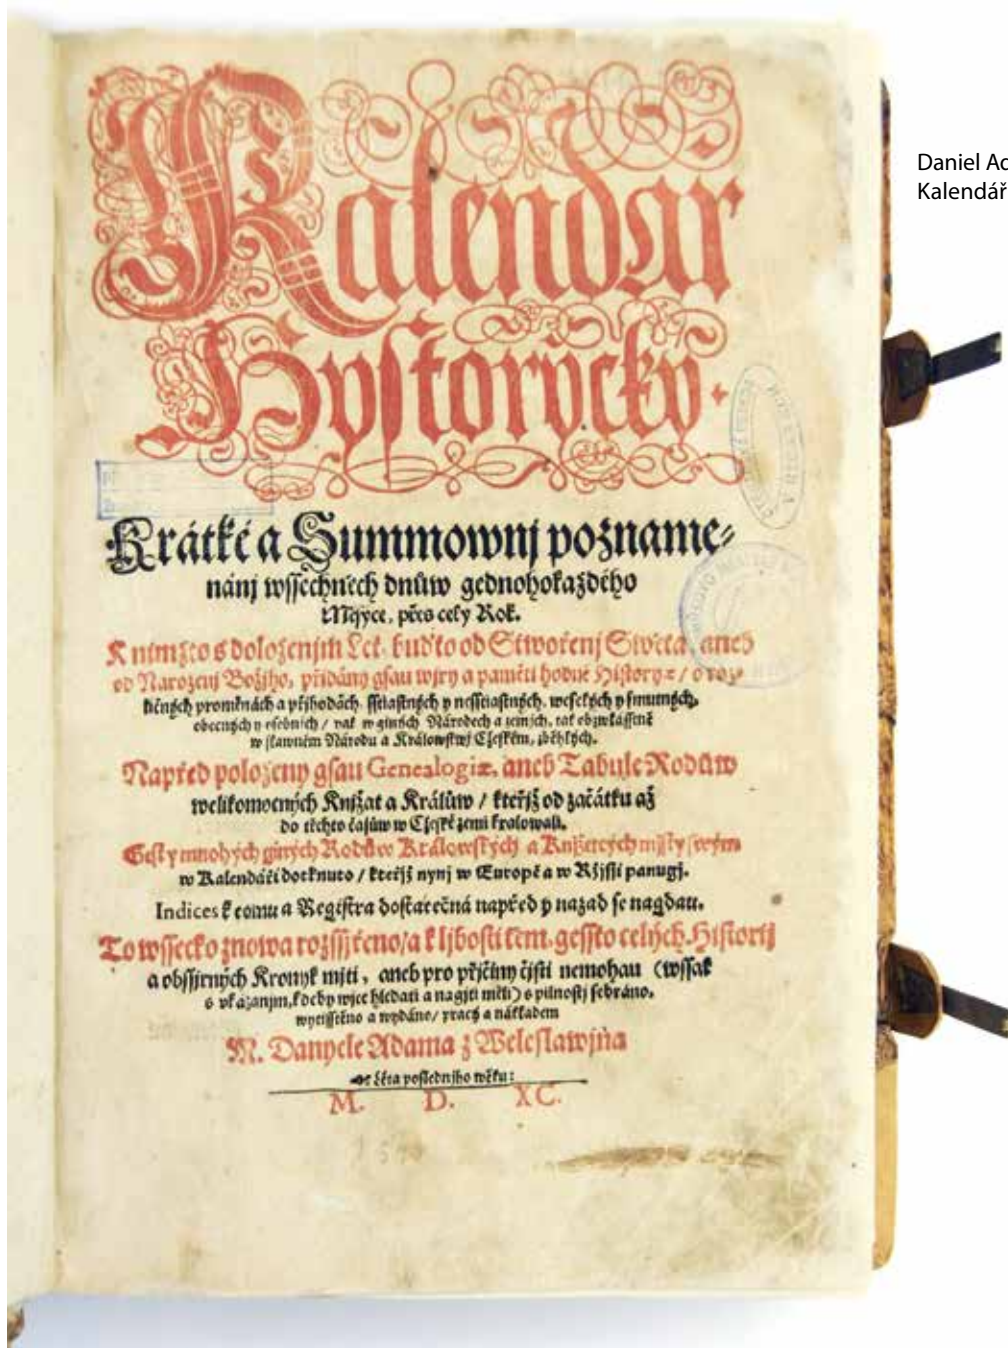 Kalendar
Hystorycky.
Krátké a Summownj pozname⸗
nánj wssechněch dnůw gednohokaždého
Měsýce, přes celý Rok.
K nimžto s doloženjm Let, buďto od Stwořenj Swěta, aneb
od Narozenj Božjho, přidány gsau wjry a paměti hodné Historyæ / o roz⸗
ličných proměnách a přjhodách, sstiastných y nesstiastných, weselých y smutných,
obecných y osobnjch / tak w giných Národech a zemjch, tak obzwlásstně
w slawném Národu a Králowstwj Cžeském, zběhlých.
Napřed položeny gsau Genealogiæ, aneb Tabule Rodůw
welikomocných Knjžat a Králůw / kteřjž od začátku až
do těchto časůw w Cžeské zemi kralowali.
Gest y mnohých giných Rodůw Králowských a Knjžetcých mjsty swými
w Kalendáři dotknuto / kteřjž nynj w Europě a w Ržjssi panugj.
Indices k tomu a Registra dostatečná napřed y nazad se nagdau.
To wssecko znowa rozssjřeno / a k ljbosti těm, gessto celých Historij
a obssjrných Kronyk mjti, aneb pro přjčiny čjsti nemohau (wssak
s vkázanjm, kdeby wjce hledati a nagjti měli) s pilnostj sebráno,
wytisstěno a wydáno / pracý a nákladem
M. Danyele Adama z Weleslawjna
Léta poslednjho wěku:
M. D. XC.
1590
Daniel Ad
Kalendář